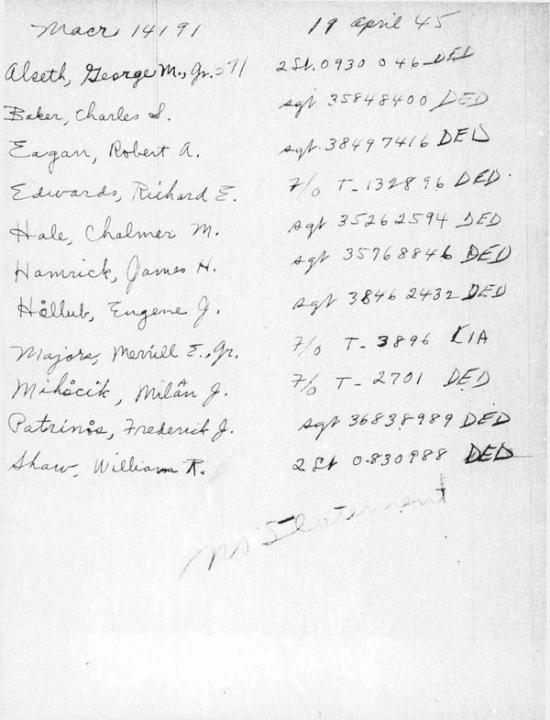 Macr 14191 19 april 45
Alseth, George M., Jr. 2 Lt. 0930 046 DED
Baker, Charles S. sgt 35848400 DED
Eagan, Robert A. sgt. 38497416 DED
Edwards, Richard E. F/O T-132896 DED.
Hale, Chalmer M. sgt 35262594 DED
Hamrick, James H. sgt 35768846 DED
Hollub, Eugene J. sgt 3846 2432 DED
Majors, Merrill E., Jr. F/O T-3896 KIA
Mihocik, Milan J. F/O T-2701 DED
Patrinos, Frederick J. sgt 36838989 DED
Shaw, William R. 2 Lt 0-830988 DED
no Statement